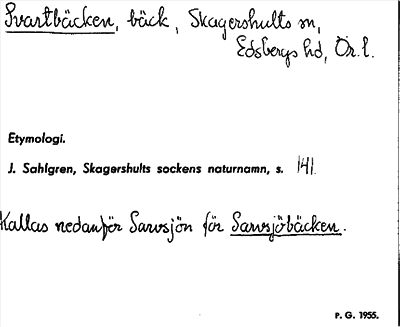 Svartbäcken, bäck, Skagershults sn,
Edsbergs hd, Ör. l.
Etymologi.
J. Sahlgren, Skagershults sockens naturnamn, s. 141.
Kallas nedanför Sarvsjön för Sarvsjöbäcken.
P. G. 1955.